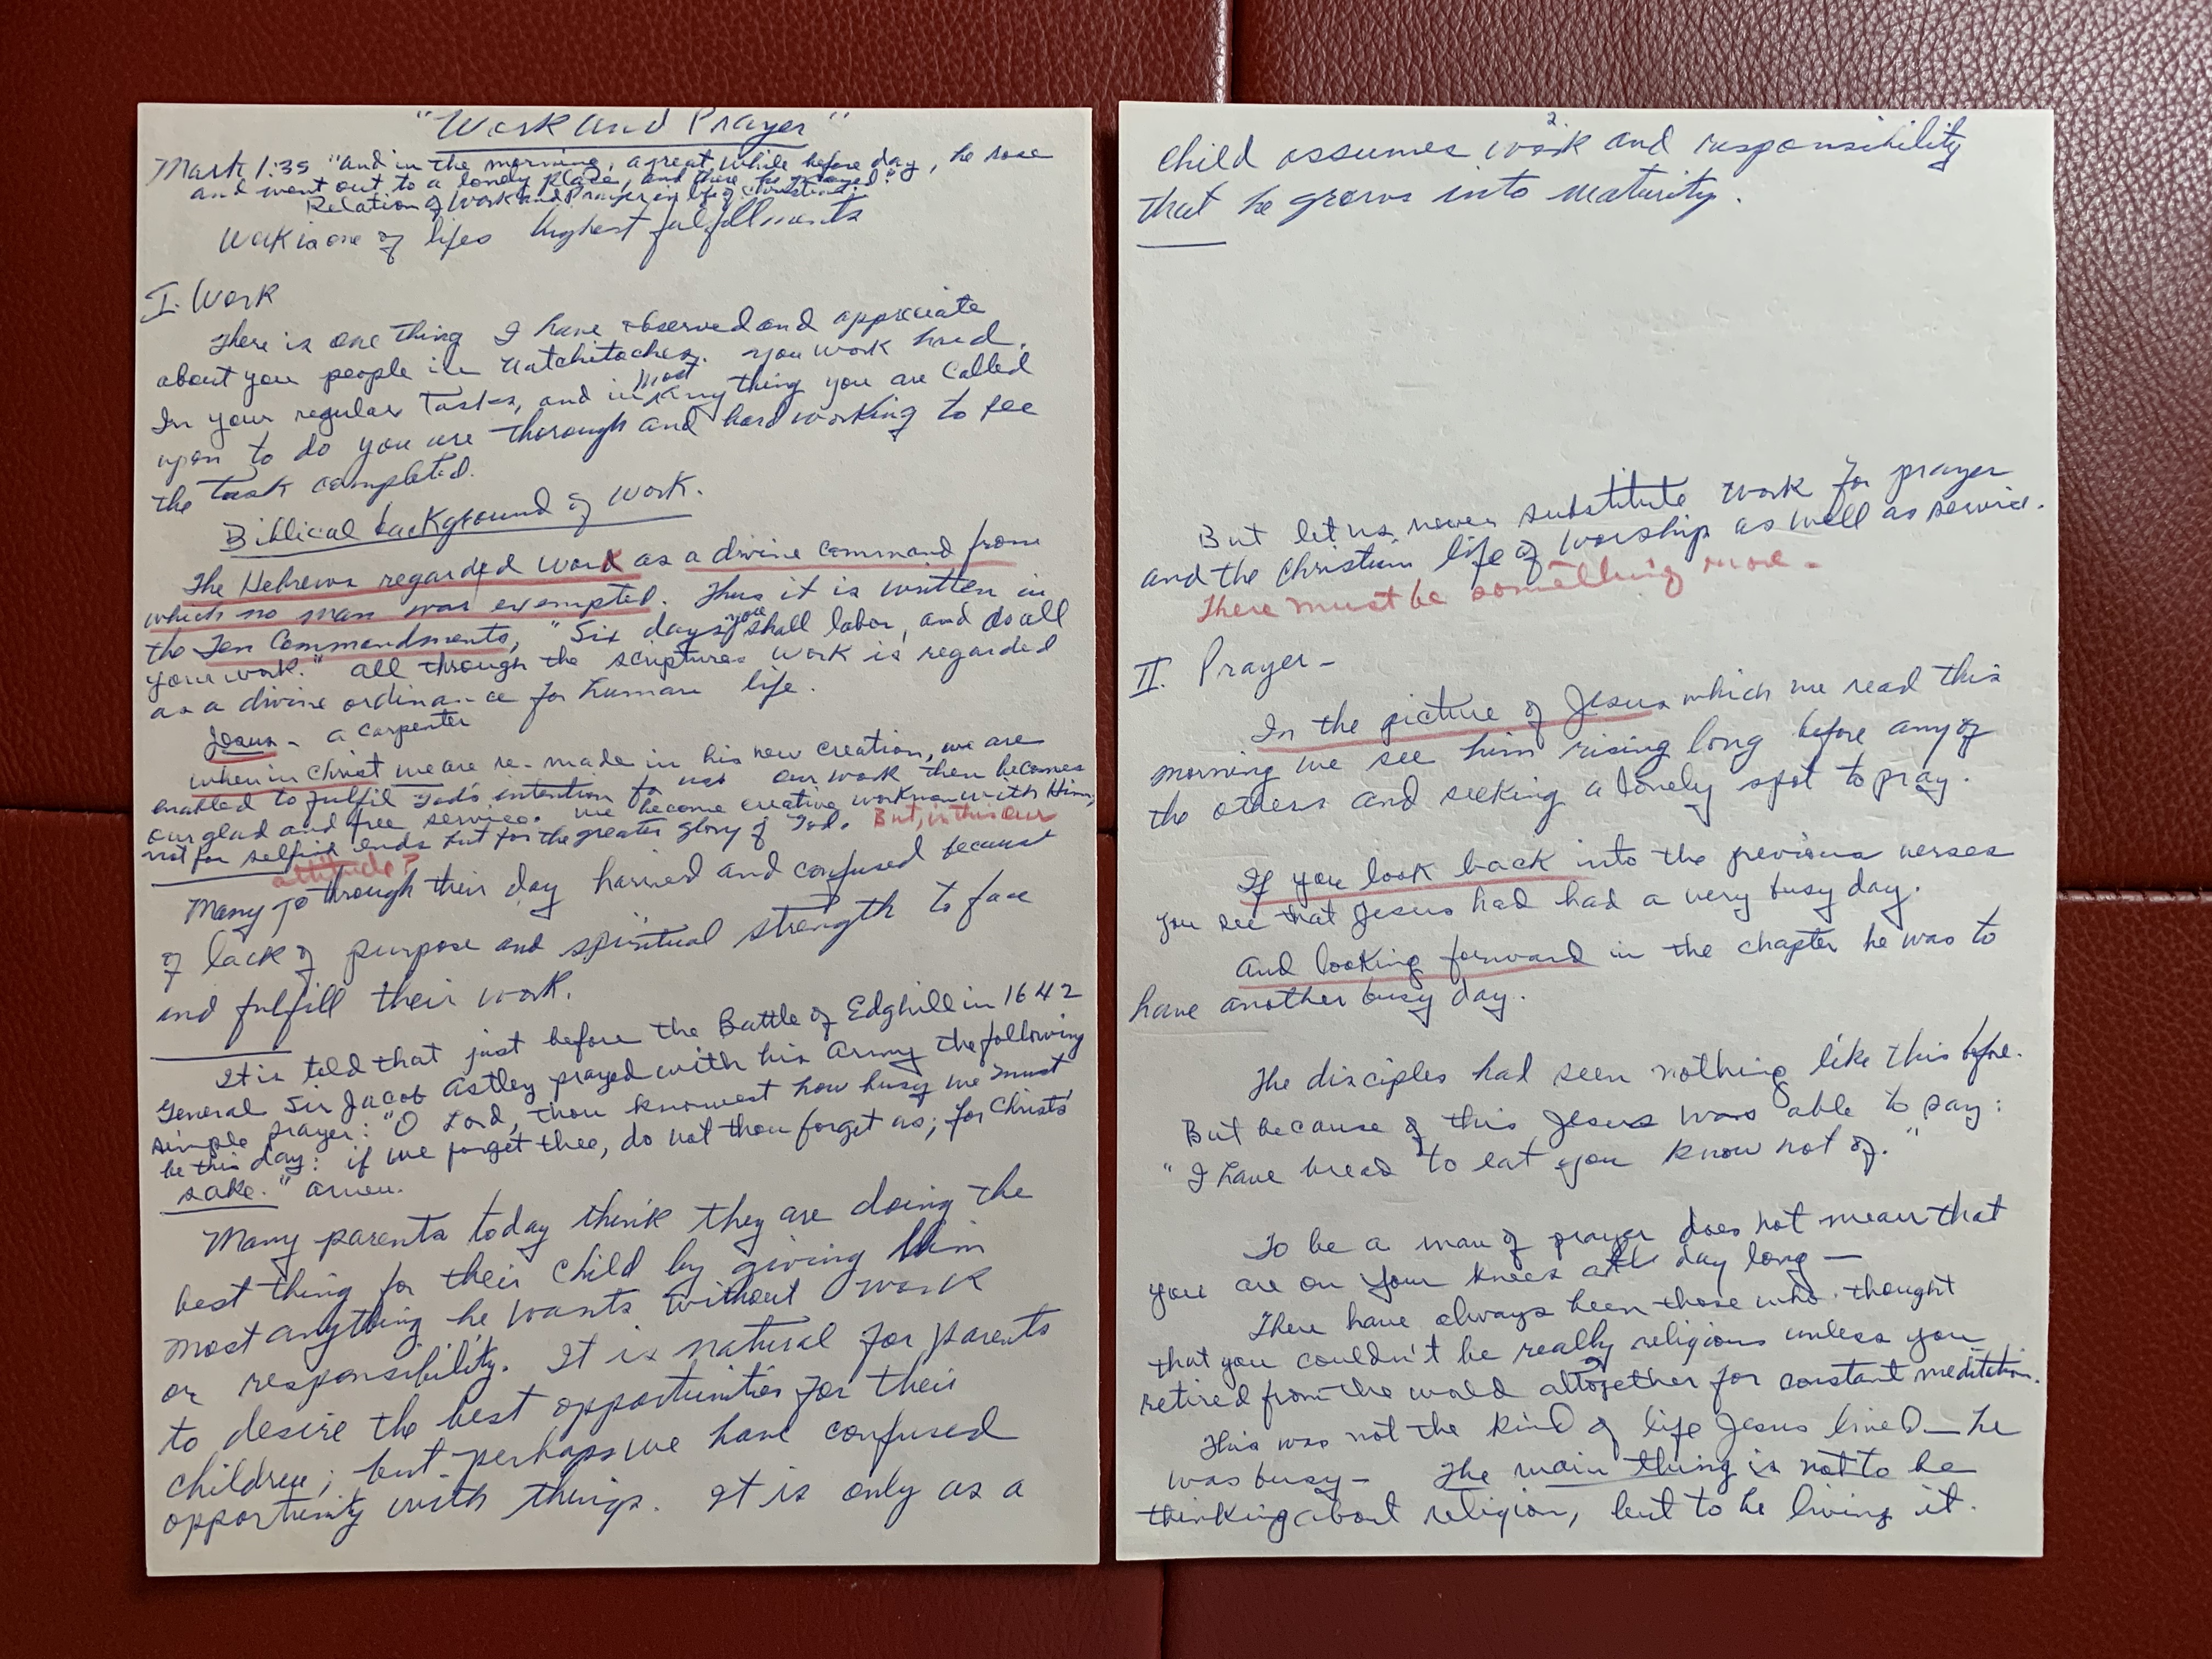 "Work and Prayer"
Mark 1:35 "and in the morning, a great while before day, he rose
and went out to a lonely place, and there he prayed."
Relation of Work and Prayer in life of Christian.
Work is one of lifes highest fulfillments
I. Work
There is one thing I have observed and appreciate
about you people in Natchitoches. You work hard.
In your regular tasks, and in most any thing you are called
upon to do you are thorough and hard working to see
the task completed.
Biblical background of work.
The Hebrews regarded work as a divine command from
which no man was exempted. Thus it is written in
the Ten Commandments, "Six days you shall labor, and do all
your work." All through the scriptures work is regarded
as a divine ordinance for human life.
Jesus - a carpenter
When in Christ we are re-made in his new creation, we are
enabled to fulfil God's intention to us our work then becomes
our glad and free service. We become creative workman with Him,
not for selfish ends but for the greater glory of God. But, is this our
attitude?
Many go through their day harried and confused because
of lack of purpose and spiritual strength to face
and fulfill their work.
It is told that just before the Battle of Edghill in 1642
General Sir Jacob Astley prayed with his Army the following
simple prayer: "O Lord, thou knowest how busy we must
be this day: if we forget thee, do not thou forget us; for Christs'
sake." Amen.
Many parents today think they are doing the
best thing for their child by giving him
most anything he wants without work
or responsibility. It is natural for parents
to desire the best opportunities for their
children; but perhaps we have confused
opportunity with things. It is only as a
2
child assumes work and responsibility
that he grows into maturity.
But let us never substitute work for prayer
and the Christian life of worship as well as service.
There must be something more -
II. Prayer -
In the picture of Jesus which we read this
morning we see him rising long before any of
the others and seeking a lonely spot to pray.
If you look back into the previous verses
you see that Jesus had had a very busy day.
And looking forward in the chapter he was to
have another busy day.
The disciples had seen nothing like this before.
But because of this Jesus was able to say:
"I have bread to eat you know not of."
To be a man of prayer does not mean that
you are on your knees all day long —
There have always been those who thought
that you couldn't be really religious unless you
retired from the world altogether for constant meditation.
This was not the kind of life Jesus lived — he
was busy - The main thing is not to be
thinking about religion, but to be living it.